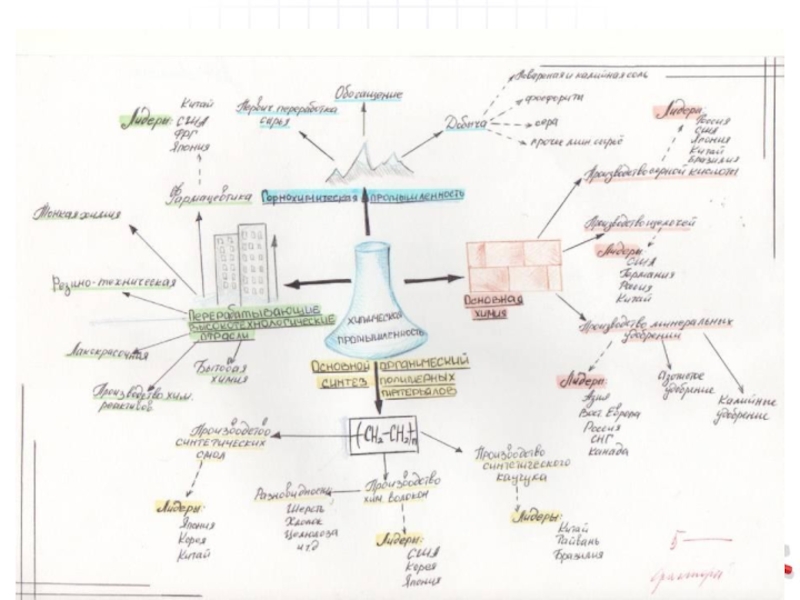 Обогащение
Первич. переработка
сырья
Добыча
Поваренная и калийная соль
фосфориты
сера
прочие мин. сырьё
Горнохимическая промышленность
Лидеры:
Китай
США
ФРГ
Япония
Фармацевтика
Тонкая химия
Резино-техническая
Лакокрасочная
Производство хим.
реактивов
Бытовая
химия
Перерабатывающие
высокотехнологические
отрасли
Химическая
промышленность
Основная
химия
Производство серной кислоты
Лидеры:
Россия
США
Япония
Китай
Бразилия
Производство щелочей
Лидеры:
США
Германия
Россия
Китай
Производство минеральных
удобрений
Лидеры:
Азия
Вост Европа
Россия
СНГ
Канада
Азотное
удобрение
Калийные
удобрение
Основной органический
синтез полимерных
материалов
(-CH₂-CH₂)n
Производство
синтетических
смол
Лидеры:
Япония
Корея
Китай
Производство
хим волокон
Разновидности
Шерсть
Хлопок
Целлюлоза
и т.д
Лидеры:
США
Корея
Япония
Производство
синтетического
каучука
Лидеры:
Китай
Тайвань
Бразилия
5